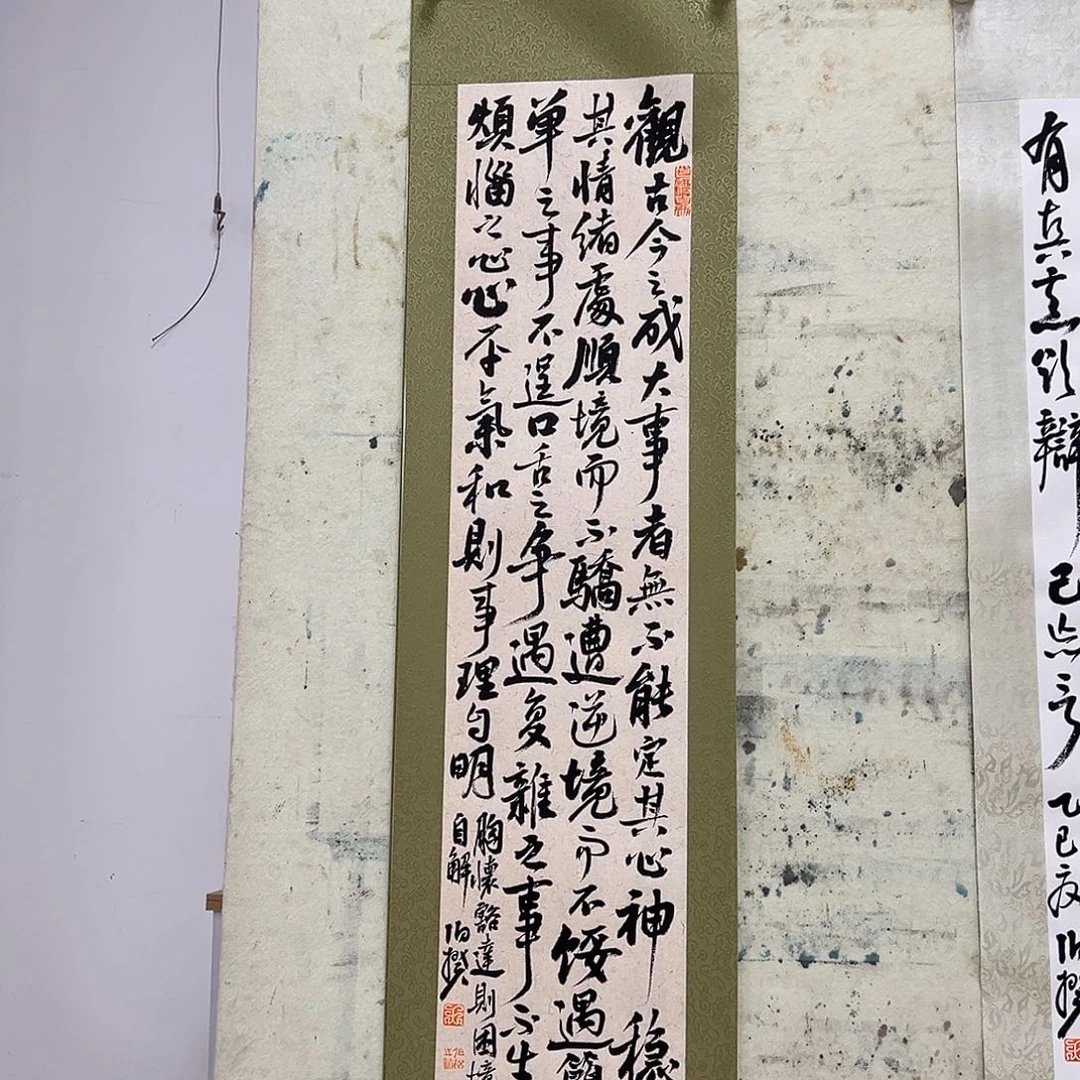 觀古今之成大事者無不能定其心神穩
其情緒處順境而不驕遭逆境而不餒遇簡
单之事不逞口舌之争遇复雜之事不生
煩惱之心心平氣和則事理自明
胸懷豁達則困境
自解
有真意欲辯已忘言
乙巳夏